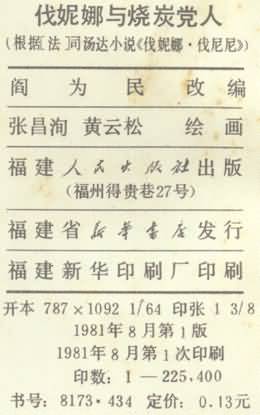 伐妮娜与烧炭党人
(根据[法]司汤达小说《伐妮娜·伐尼尼》)
阎为民 改编
张昌洵 黄云松 绘画
福建人民出版社出版
(福州得贵巷27号)
福建省新华书店发行
福建新华印刷厂印刷
开本 787×1092 1/64 印张 1 3/8
1981年8月第1版
1981年8月第1次印刷
印数:1—225,400
书号:8173·434 定价:0.13元